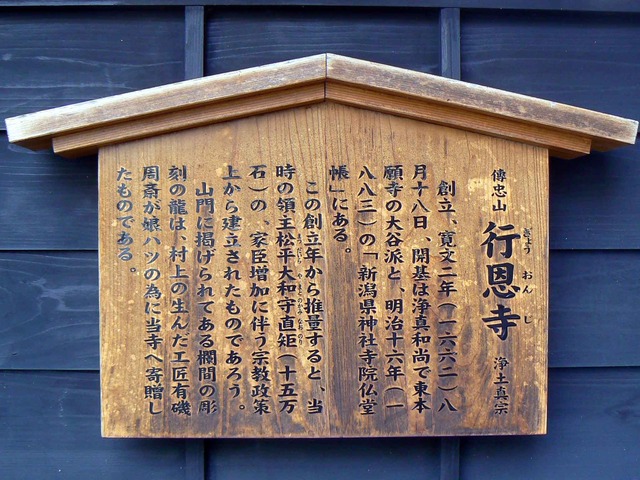 傳忠山 行恩寺 浄土真宗
ぎょうおんじ
創立、寛文二年（一六六二）八
月十八日、開基は浄真和尚で東本
願寺の大谷派と、明治十六年（一
八八三）の「新潟県神社寺院仏堂
帳」にある。
この創立年から推量すると、当
時の領主松平大和守直矩（十五万
石）の、家臣増加に伴う宗教政策
上から建立されたものであろう。
山門に掲げられてある欄間の彫
刻の龍は、村上の生んだ工匠有磯
周斎が娘ハツの為に当寺へ寄贈し
たものである。